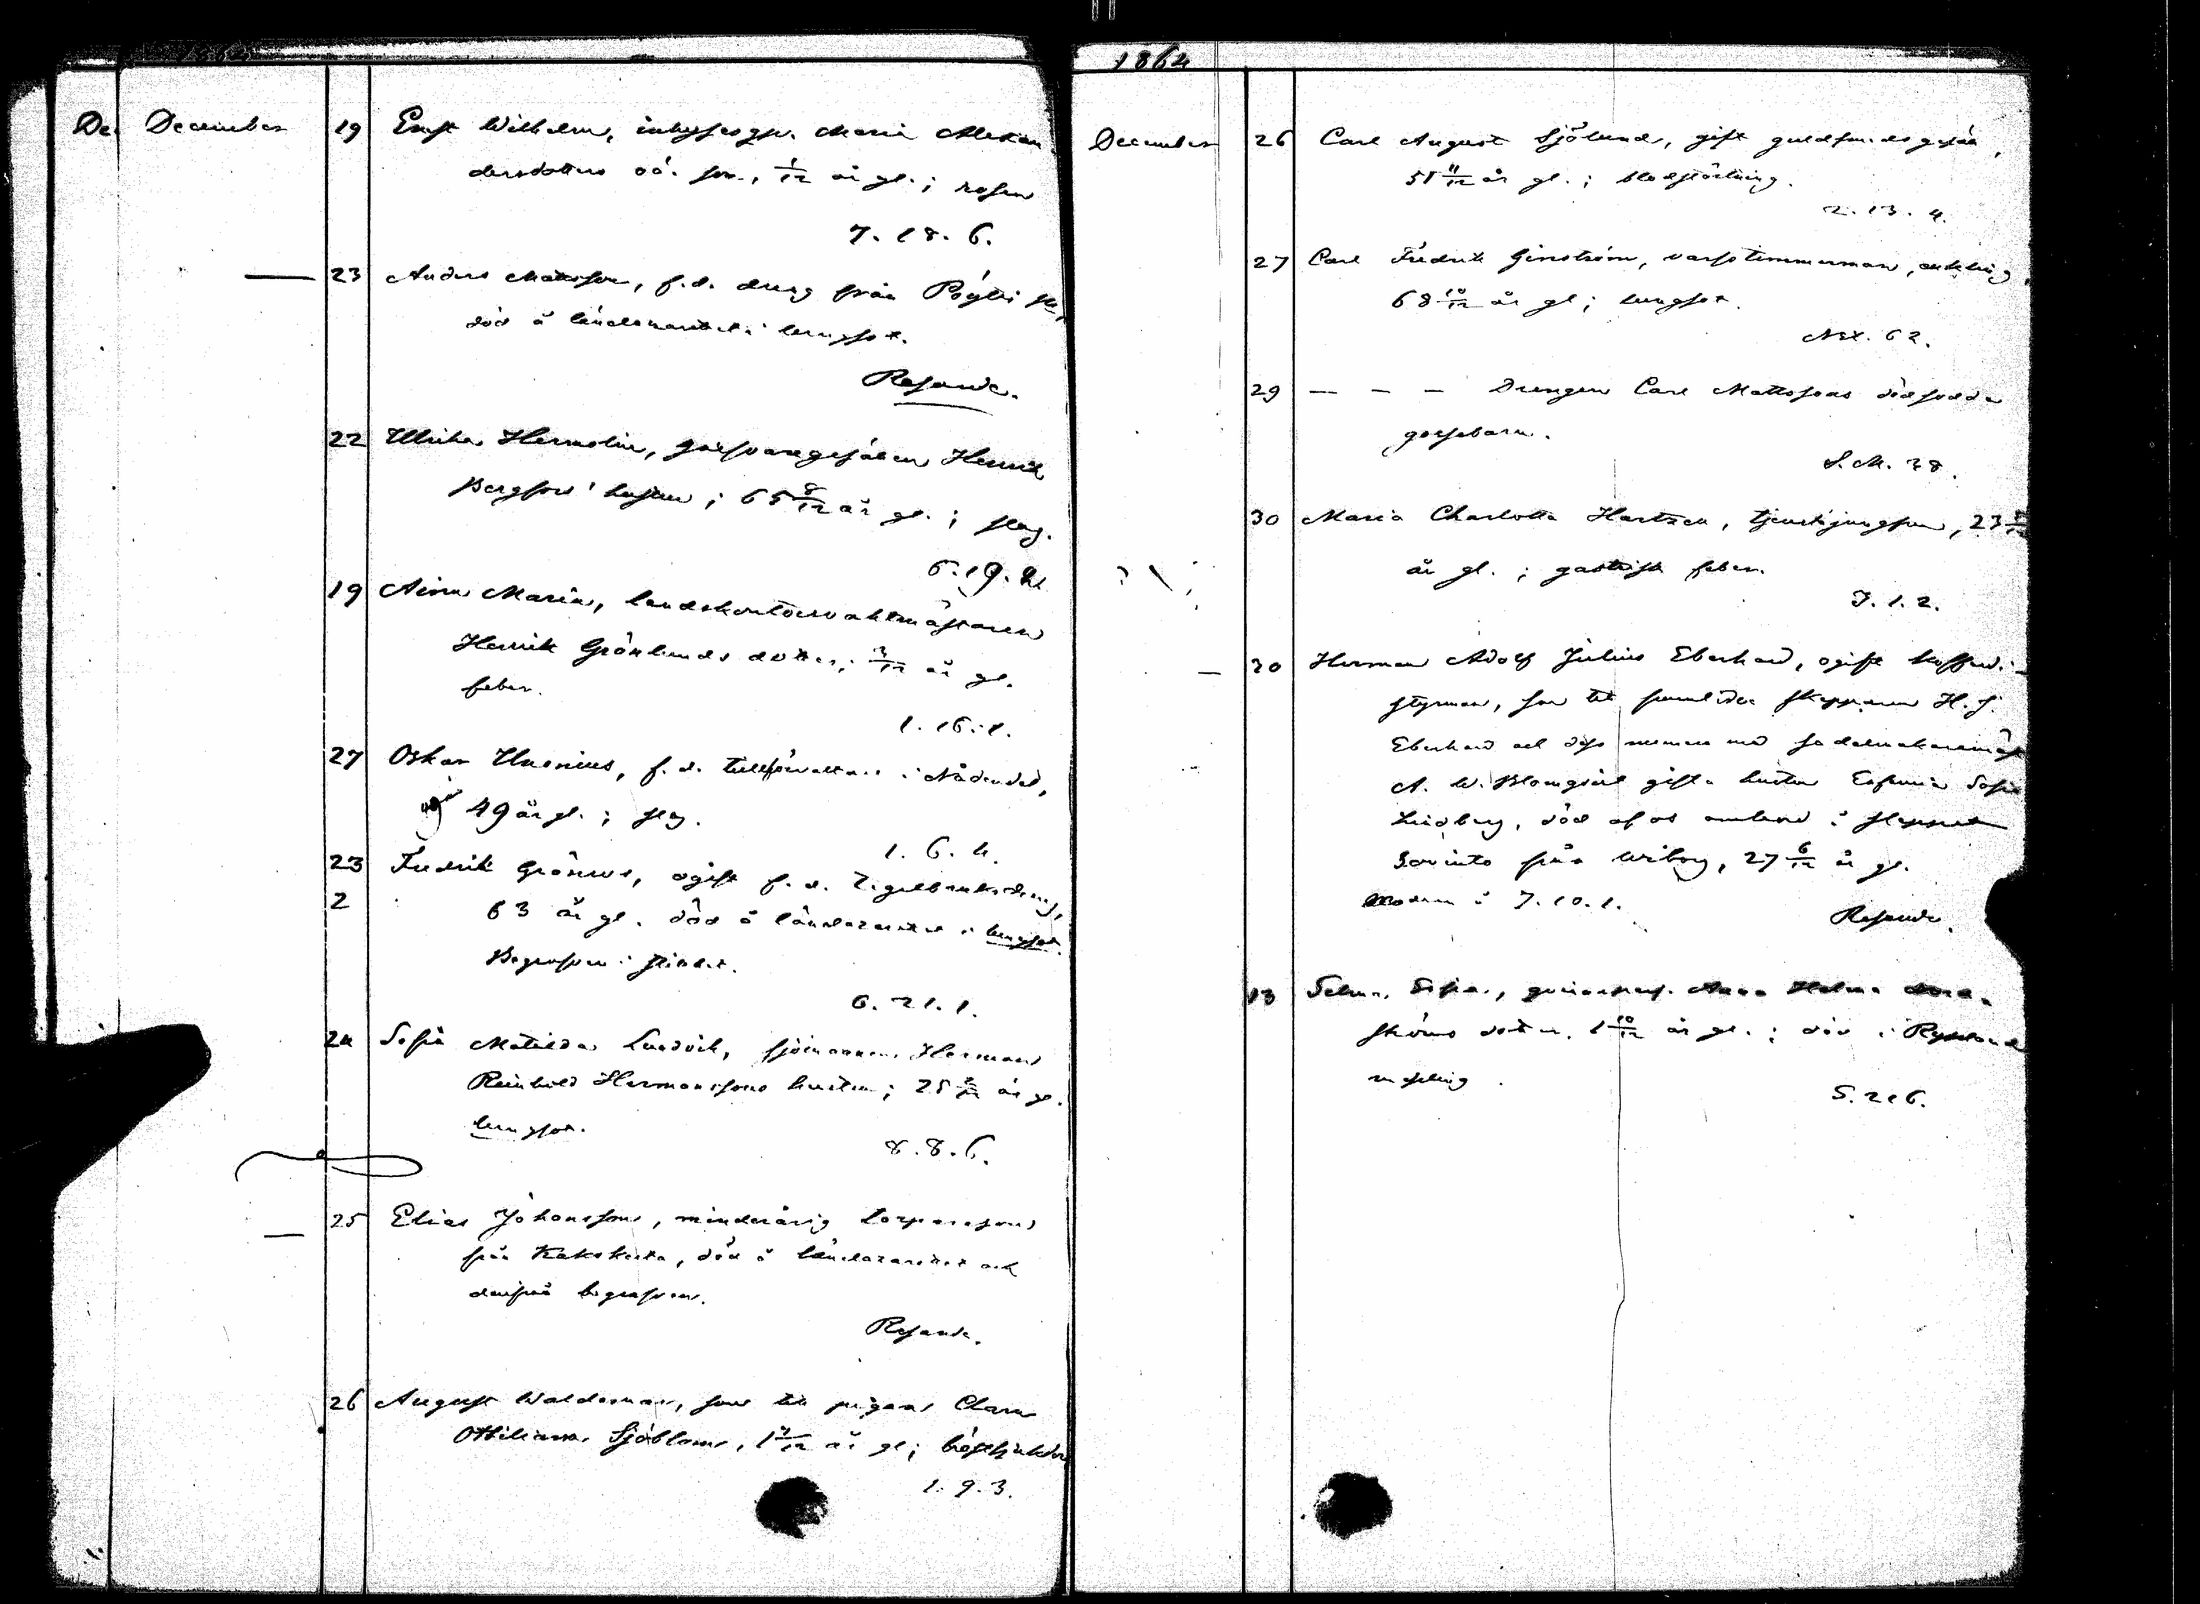 1864
De. December 19 Ernst Wilhelm, inhyses qv. Maria Alexan-
dersdotters oä. son, 1/12 år gl.; rosen
7. 18. 6.
23 Anders Mattsson, f.d. dräng från Pöytis
död å länslazarettet i lungsot.
Resande.
22 Ulrika Hermelin, garfvaregesällen Henrik
Bergfors' hustru; 65 8/12 år gl.; slag.
6. 19. 2
19 Aina Maria, landskontorsvaktmästaren
Henrik Grönlunds dotter; 3/12 år gl.
feber.
1. 16. 1.
27 Oskar Husenius, f.d. tullförvaltare i Nådendal,
49 år gl.; slag.
1. 6. 4.
23 Fredrik Grönroos, ogift f.d. Tegelbruksdräng,
2 63 år gl. död å länslazarettet i lungsot.
Begrafven i
6. 21. 1.
24 Sofia Matilda Lundvik, sjömannen Herman
Reinhold Hermanssons hustru; 25 år gl.
lungsot.
8. 8. 6.
25 Elias Johansson, minderårig torpareson
från Kakskerta, död å länslazarettet och
derifrå begrafven.
Resande.
26 August Waldemar, son till pigan Clara
Ottiliana Sjöblom, 1 år gl; bröstsjukdom
1. 9. 3.
December 26 Carl August Sjölund, gift guldsmedsgesäll,
55 11/12 år gl.; blodstörtning.
2. 13. 4.
27 Carl Fredrik Ginström, varfstimmerman, enkling,
68 10/12 år gl; lungsot.
62.
29 — — — Drengen Carl Mattssons dödfödda
gossebarn.
S. M. 38.
30 Maria Charlotta Hartzell, tjenstejungfru, 23
år gl.; gastrisk feber.
7. 1. 2.
30 Herman Adolf Julius Eberhard, ogift kofferdi-
styrman, son till framlidne skepparen H. J.
Eberhard och dess numera med sadelmakaremäst
A. W. Blomqvist gifta hustru Eufemia Sofia
Lindberg, död af os ombord i skeppet
från Wiborg, 27 6/12 år gl.
Modren i 7. 10. 1. Resande.
13 Selma Sofia, qvinsspers. Anna Helena
ströms dotter, 1 10/12 år gl.; död i Ryssland
messling
5. 216.